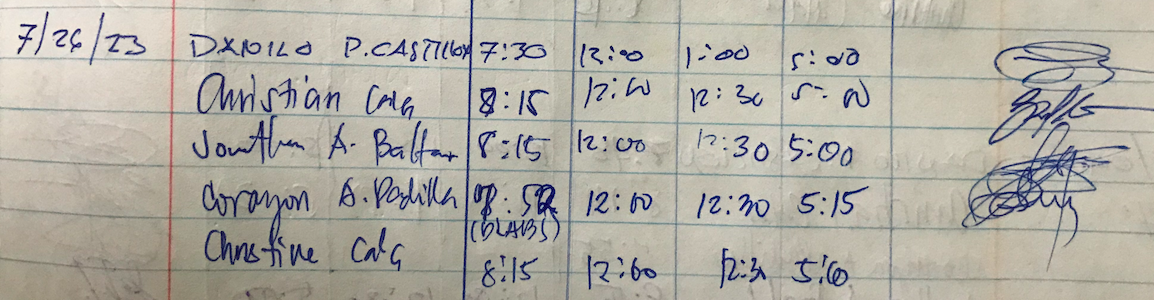 7/26/23 DANILO P. CASTILLO 7:30 12:00 1:00 5:00
Christian Calg 8:15 12:00 12:30 5:00
Jonathan A. Baltar 8:15 12:00 12:30 5:00
Corazon A. Padilla 8:52 12:00 12:30 5:15
(OLABS)
Christine Calg
8:15 12:00 12:30 5:00